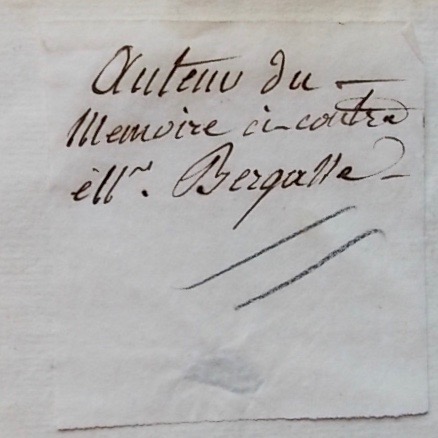 Auteur du
Memoire ci-contre
Mr. Bergasse